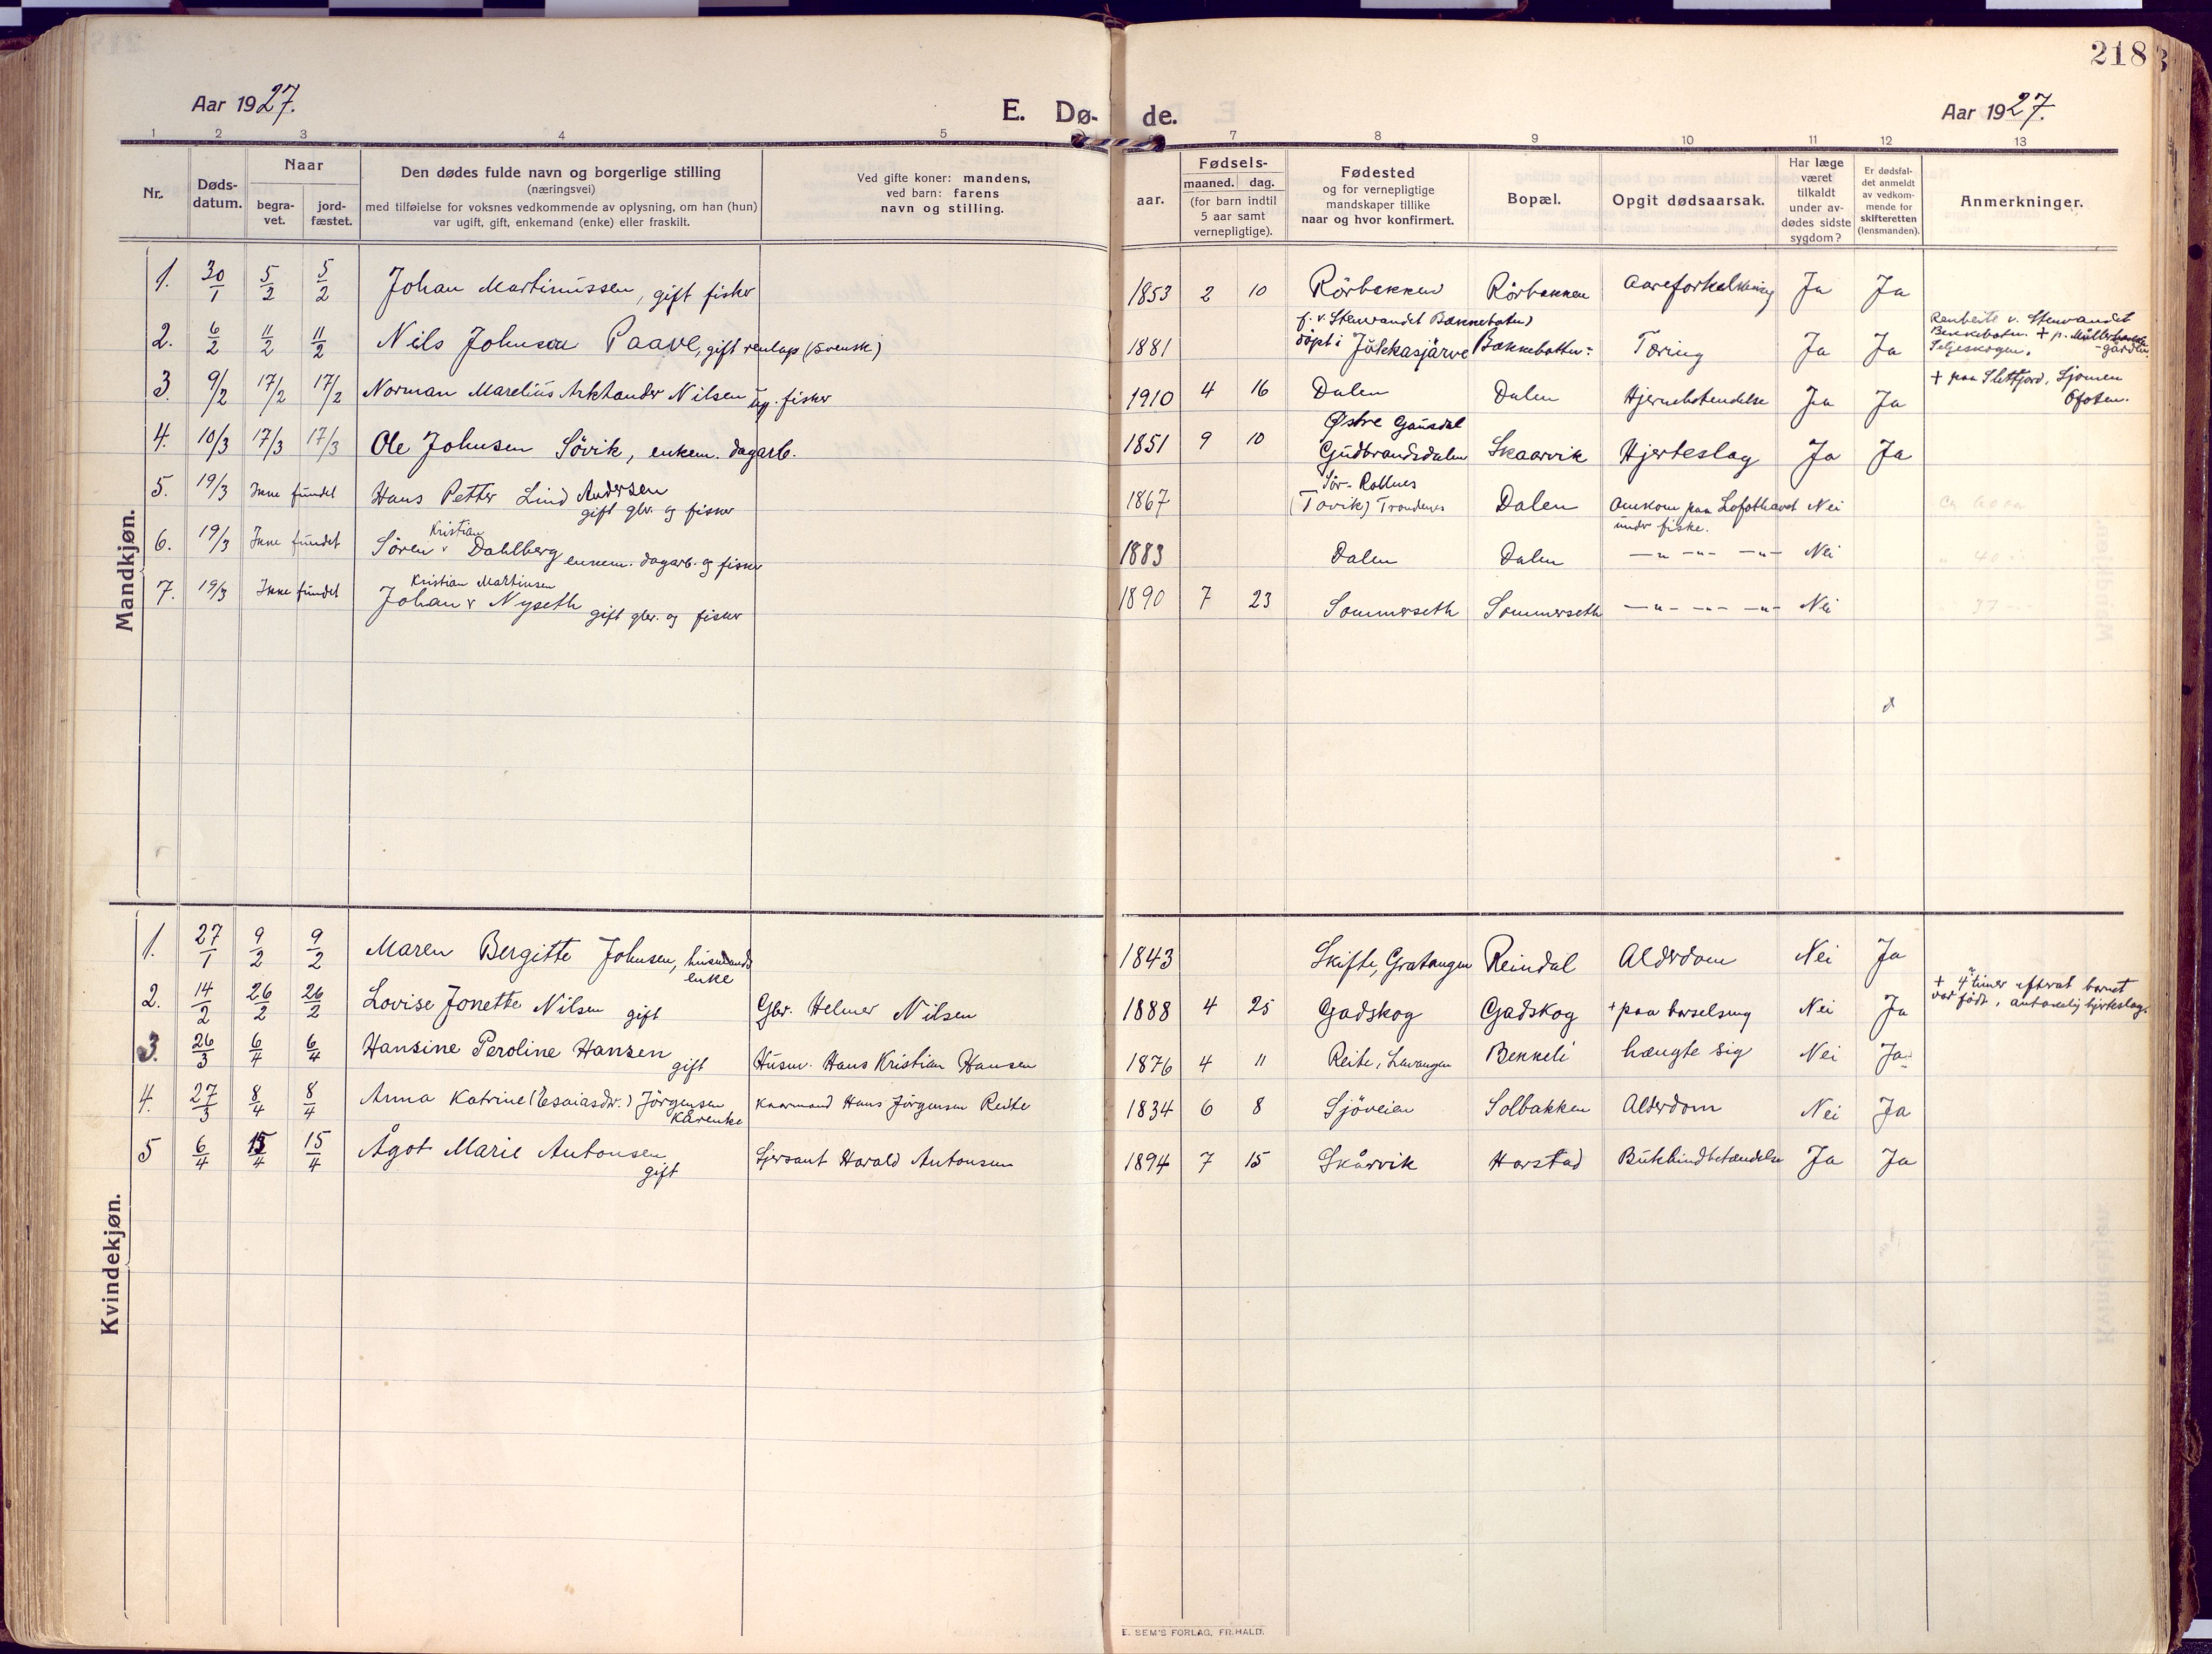 218
Aar 1927.
E. Dø- de.
Aar 1927.
1 2 3 4 5 7 8 9 10 11 12 13
Nr.
Døds-
datum.
Naar
begra-
vet.
jord-
fæstet.
Den dødes fulde navn og borgerlige stilling
(næringsvei)
med tilføielse for voksnes vedkommende av oplysning, om han (hun)
var ugift, gift, enkemand (enke) eller fraskilt.
Ved gifte koner: mandens,
ved barn: farens
navn og stilling.
Fødsels-
aar.
maaned. dag.
(for barn indtil
5 aar samt
vernepligtige).
Fødested
og for vernepligtige
mandskaper tillike
naar og hvor konfirmert.
Bopæl.
Opgit dødsaarsak.
Har læge
været
tilkaldt
under av-
dødes sidste
sygdom?
Er dødsfal-
det anmeldt
av vedkom-
mende for
skifteretten
(lensmanden).
Anmerkninger.
Mandkjøn.
1. 30/1 5/2 5/2 Johan Martinussen, gift fisker 1853 2 10 Rörbakken Rörbakken Aareforkalkning Ja Ja
2. 6/2 11/2 11/2 Nils Johnson Paave, gift renlap (svensk) 1881 f. v. Stenvandet Bækkebotn)
döpt i Jukkasjärve Bækkebotten: Tæring Ja Ja Renbeite v. Stenvandet
Bekkebotn. + p.
Seljeskogen.
3. 9/2 17/2 17/2 Norman Marelius Arkhander Nilsen ug. fisker 1910 4 16 Dalen Dalen Hjernebetendelse Ja Ja + paa Slettfjord, Sjomen
Ofoten.
4. 10/3 17/3 17/3 Ole Johnsen Sövik, enkem. dagarb. 1851 9 10 Østre Gausdal
Gudbrandsdalen Skaarvik Hjerteslag Ja Ja
5. 19/3 Ikke fundet Hans Petter Lind Andersen
gift gbr. og fisker 1867 Sör-Rollnes
(Tovik) Trondenes Dalen Omkom paa Lofothavet
under fiske. Nei ca 60 aar
6. 19/3 Ikke fundet Sören Kristian Dahlberg enkem. dagarb. og fisker 1883 Dalen Dalen —"— —"— —"— Nei " 40 "
7. 19/3 Ikke fundet Johan Kristian Martinsen Nyseth
gift gbr. og fisker 1890 7 23 Sommerseth Sommerseth —"— —"— —"— Nei 37
Kvindekjøn.
1. 27/1 9/2 9/2 Maren Bergitte Johnsen, husmands
enke 1843 Skifte, Gratangen Reindal Alderdom Nei Ja
2. 14/2 26/2 26/2 Lovise Jonette Nilsen gift Gbr. Helmer Nilsen 1888 4 25 Gadskog Gadskog + paa barselseng Nei Ja + 4 timer efterat barnet
var född, antakelig hjerteslag.
3. 26/3 6/4 6/4 Hansine Peroline Hansen
gift Husm. Hans Kristian Hansen 1876 4 11 Reite, Lavangen Bekkeli hængte sig Nei Ja
4. 27/3 8/4 8/4 Anna Katrine (Esaiasdtr.) Jörgensen
Kårenke Kaarmand Hans Jörgensen Reite 1834 6 8 Sjöveien Solbakken Alderdom Nei Ja
5 6/4 15/4 15/4 Ågot Marie Antonsen
gift Sjersant Harald Antonsen 1894 7 15 Skårvik Harstad Bukhindbetændelse Ja Ja
E. SEM'S FORLAG, FR.HALD.